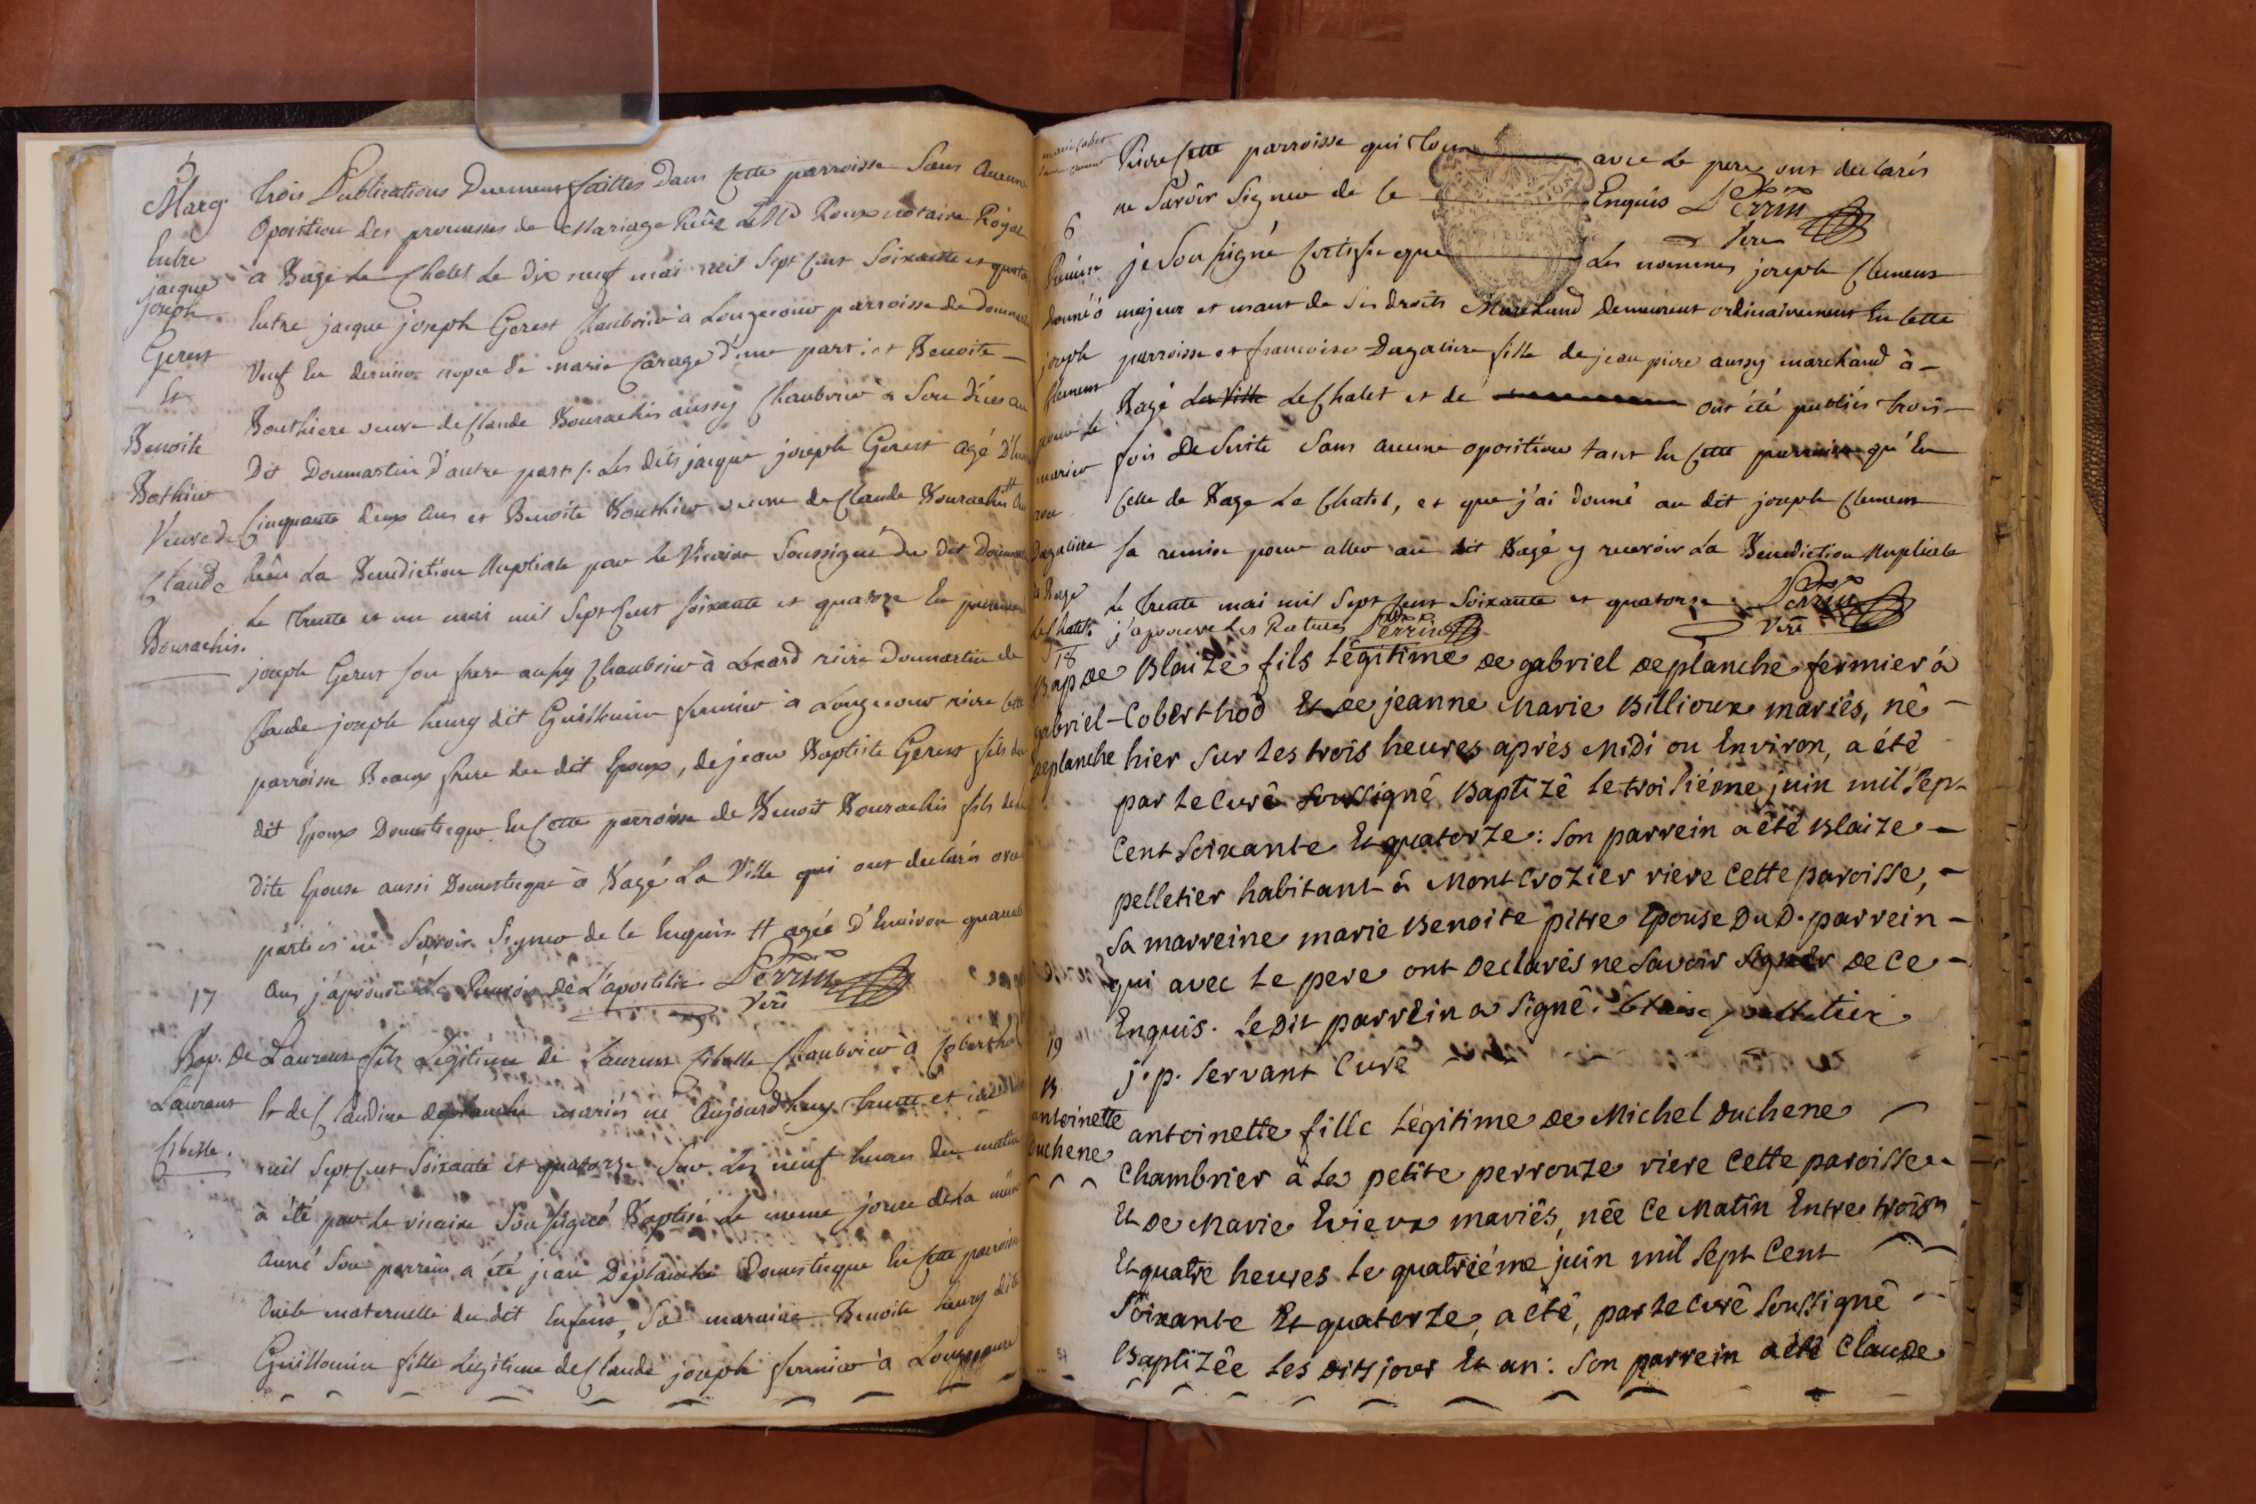 5
Marg.
Entre
jacque
joseph
Gerent
Et
Benoite
Bothier
Veuve de
Claude
Bourachis.
trois Publications Duement faittes Dans Cette parroisse Sans Aucune
Oposition Les promesses de Mariage Roux notaire Royal
à Bagé Le Chatel Le Dix neuf mai mil Sept Cent Soixante et
Entre jacque joseph Gerent à parroisse de
Veuf En de marie d'une part: et Benoite
Bouthiere veuve de Claude Bourachis aussy à Son
Dit Dommartin d'autre part /. Les dits jacque joseph Gerent agé
Cinquante deux ans et Benoite Bouthier veuve de Claude Bourachis #
La Benediction Nuptiale par Le Vicaire Soussigné Du Dit
Le trente et un mai mil Sept Cent soixante et quatorze En presence
joseph Gerent son frere aussy à riere Dommartin de
Claude joseph heury dit Guillomin fermier à riere Cette
parroisse Beaux frere du dit Epoux, de jean Baptiste Gerent fils du
dit Epoux Domestique En Cette parroisse de Benoit Bourachis fils de la
dite Epouse aussi Domestique à Bagé La Ville qui ont declarés
parties ne Savoir Signer de Ce Enquis # agée D'Environ
Ans j'aprouve Le Renvoi De L'apostille Perrin
Vire
17
Bap. De
Laurent
Cibelle.
Laurent fils Légitime de Laurent Cibelle à
Et de Claudine deplanche mariés né Aujourd'huy trente et
mil Sept Cent Soixante et quatorze Sur Les neuf heures du matin
à été par Le vicaire Soussigné Baptisé Le meme jour de La
Année Son parrein a été jean Deplanche Domestique En Cette parroisse
Oncle maternelle du dit Enfant, Sa marreine Benoite heury dite
Guillomin fille Légitime de Claude joseph fermier à
Riere Cette parroisse qui avec Le pere ont declarés
ne Savoir Signer de Ce Enquis Perrin
Vire
6
joseph
Clement
pour Se
marier
Dagaliere
à Bagé
Le Chatel.
je Soussigné Certifie que Les nommés joseph Clement
majeur et usant de Ses droits Marchand Demeurant ordinairement En Cette
parroisse et francoise Dagaliere fille de jean pierre aussy marchand à
Bagé La Ville Le Chatel et de ont été publiés trois
fois De Suite Sans aucune oposition tant En Cette parroisse qu'En
Celle de Bage Le Chatel, et que j'ai donné au dit joseph Clement
Sa remise pour aller au dit Bagé y recevoir La Benediction Nuptiale
Le trente mai mil Sept Cent Soixante et quatorze Perrin
Vire
j'aprouve Les Ratures Perrin
18
Bap de
gabriel
deplanche
Blaize fils Légitime de gabriel deplanche fermier à
Coberthod Et de jeanne Marie Billioux mariés, né
hier Sur Les trois heures après Midi ou Environ, a été
par Le Curé Soussigné Baptizé Le troisiéme juin mil Sept
Cent Soixante Et quatorze: Son parrein a été Blaize
pelletier habitant à Montcrozier riere Cette paroisse,
Sa marreine marie Benoite pitre Epouse Du D. parrein
qui avec Le pere ont declarés ne Savoir Signer de Ce
Enquis. Le Dit parrein a Signé. Blaise pelletier
j. p. Servant Curé
19
B
antoinette
Duchene
antoinette fille Légitime de Michel Duchene
Chambrier à La petite perrouze riere Cette paroisse
Et de Marie Evieux mariés, née Ce Matin Entre trois
Et quatre heures Le quatriéme juin mil Sept Cent
Soixante Et quatorze, a été, par Le Curé Soussigné
Baptizée Les dits jour Et an: Son parrein a été Claude